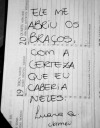 ELE ME
ABRIU OS
BRAÇOS,
COM A
CERTEZA
QUE EU
CABERIA
NELES.